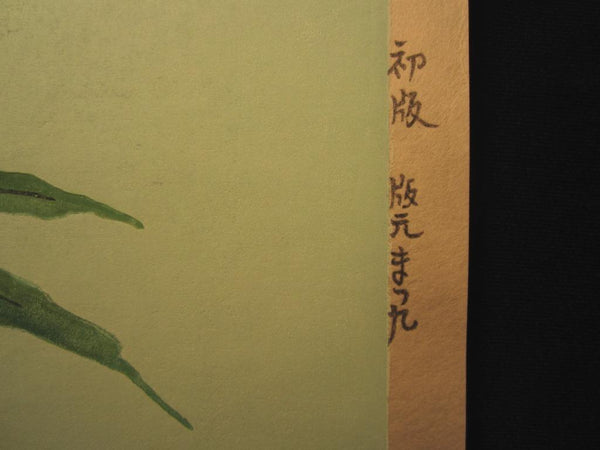 初版 版元まつ九